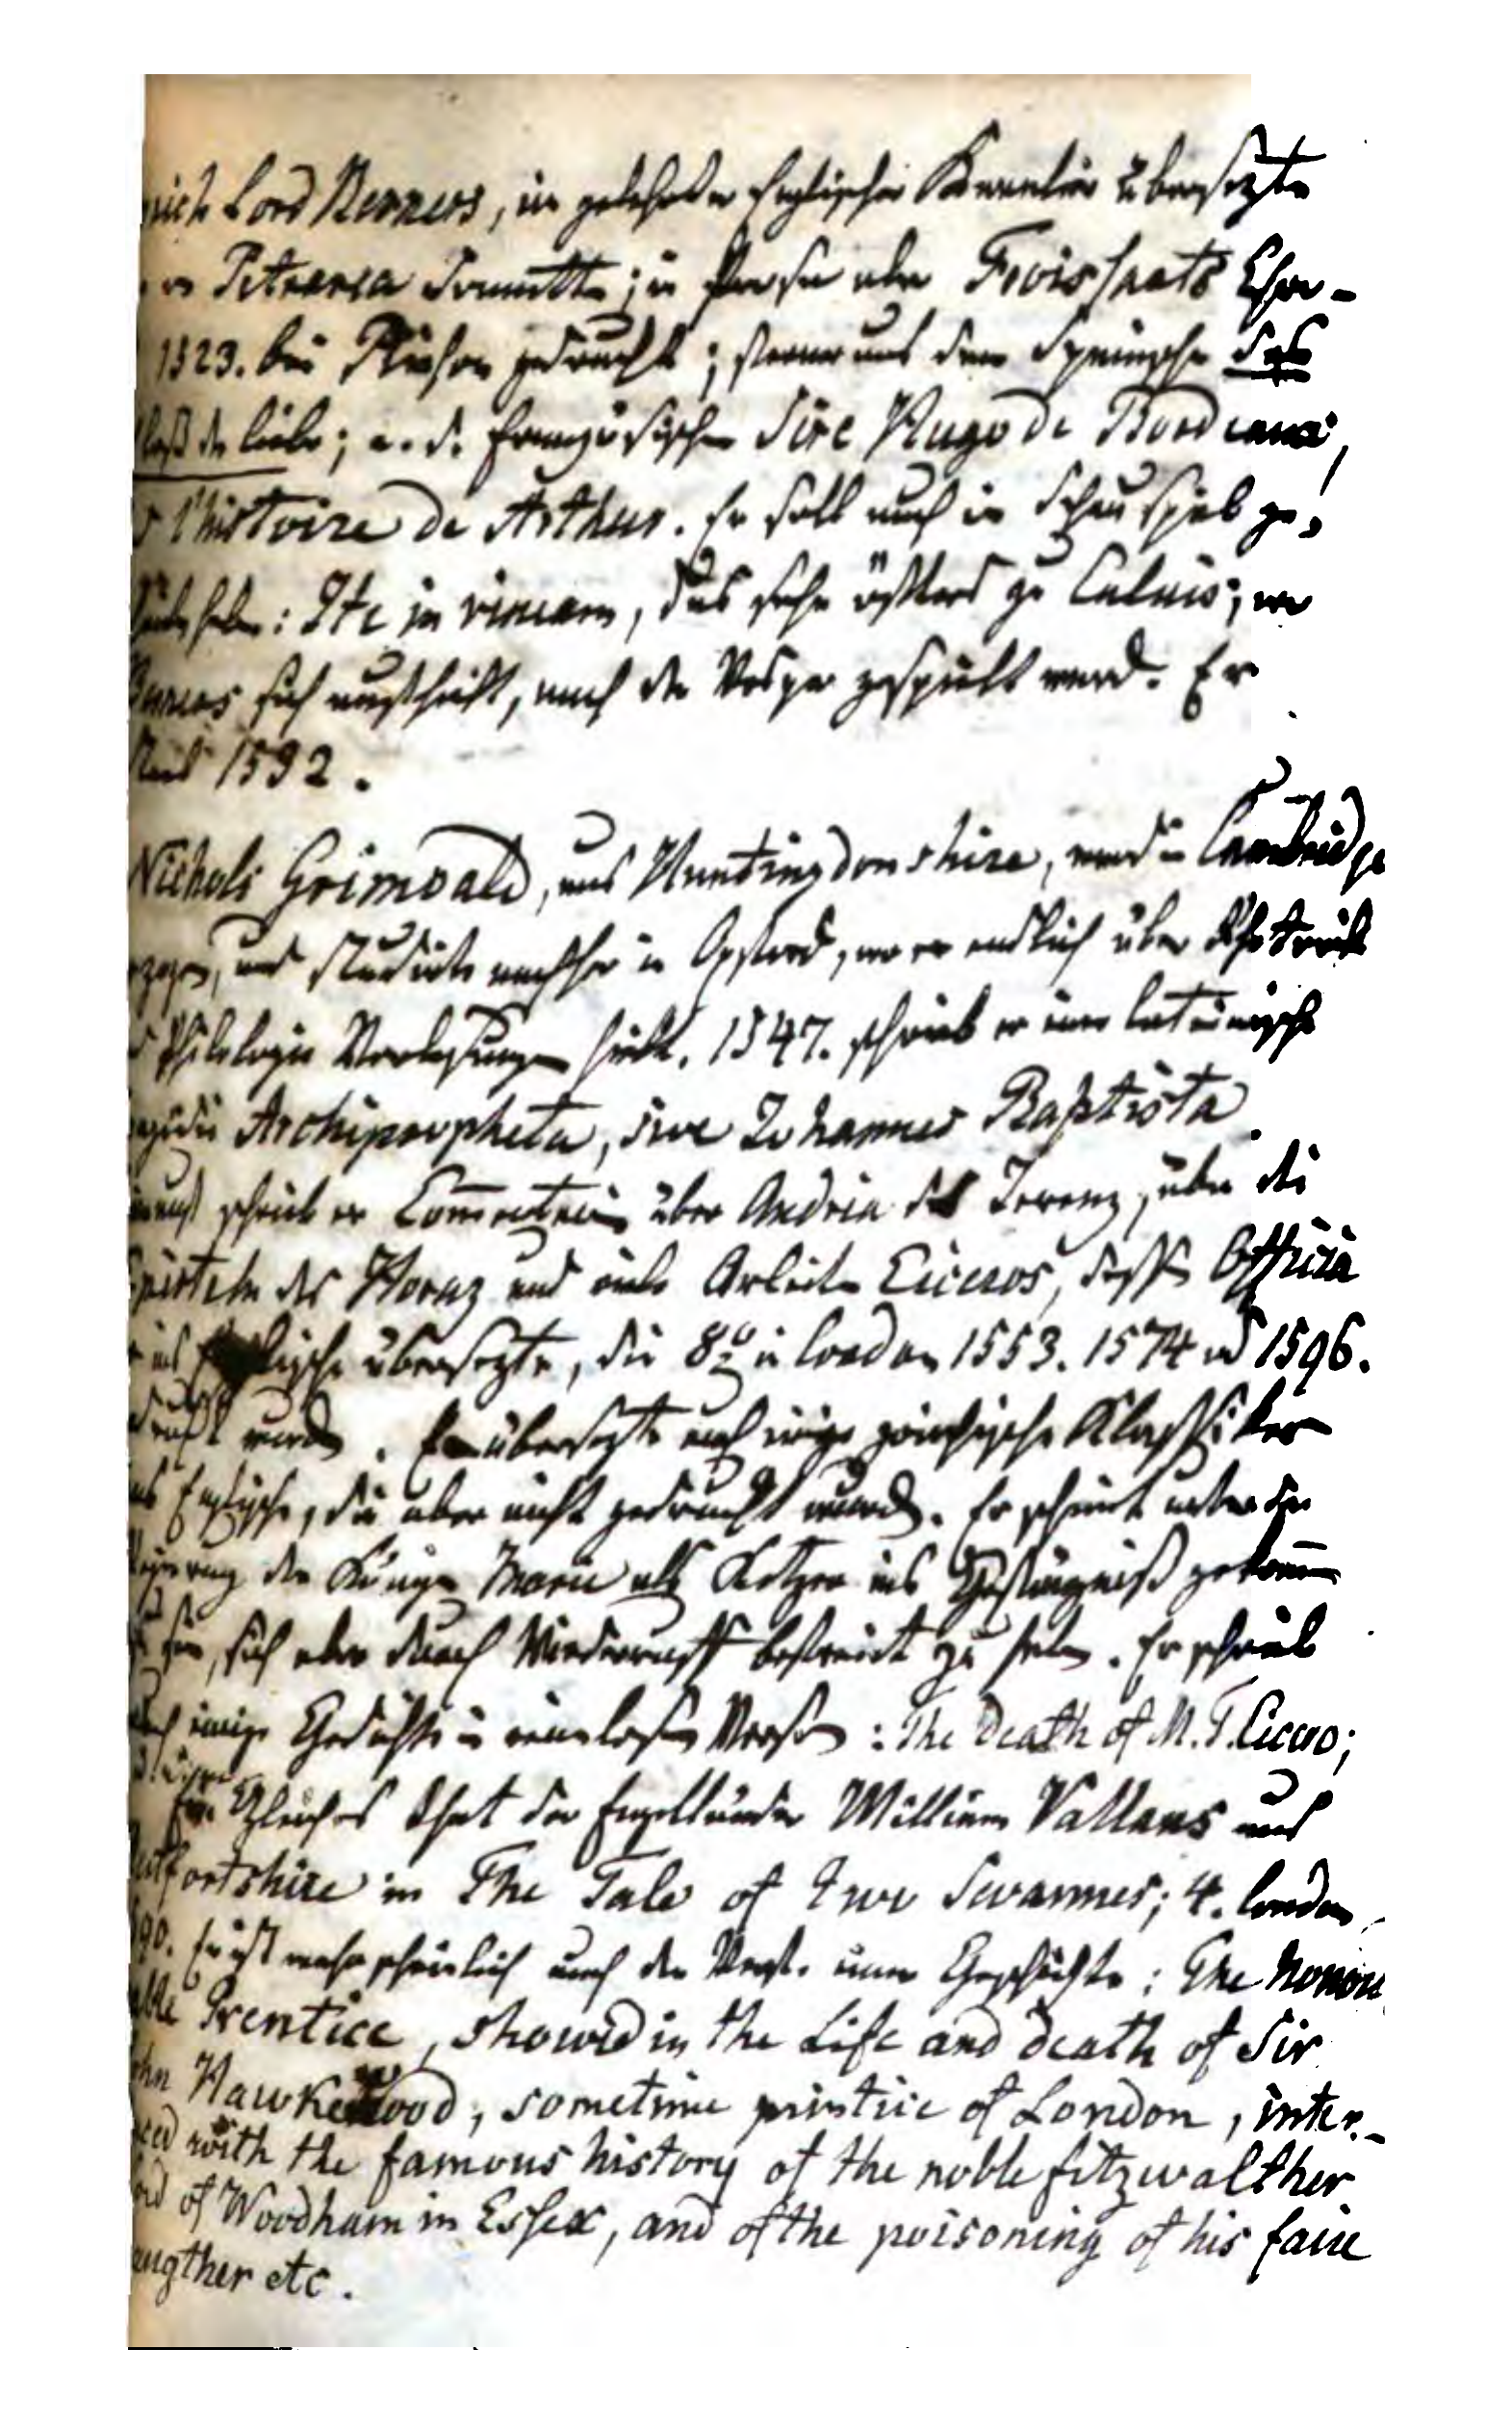 Lord Berners, ein gelehrter Englischer Kavalier übersezte
Petrarca Sonnette; in Prosa aber Froissarts Chro-
1523. bei Pinson gedruckt; ferner aus dem Spanischen das
der Liebe; a. d. Französischen Sire Hugo de Bordeaux,
l'histoire de Arthur. Er soll auch ein Schauspiel ge-
haben: Ite in vineam, das sehr öfters zu Calais, wo
sich aufhielt, nach der Vesper gespielt ward. Er
1532.
Nichols Grimoald, aus Huntingdonshire, ward in Cambridge
zogen, und studirte nachher in Oxford, wo er endlich über Rhetorik
Philologie Vorlesungen hielt. 1547. schrieb er eine lateinische
Archipropheta, sive Johannes Baptista.
schrieb er Com̅entarien über Andria des Terenz, über die
Episteln des Horaz und viele Arbeiten Ciceros, dessen Officia
ins Englische übersezte, die 8º in London 1553. 1574 und 1596.
wurden. Er übersezte auch einige griechische Klassiker
ins Englische, die aber nicht gedruckt wurden. Er scheint unter der
Regierung der Königin Maria als Ketzer ins Gefängniß gekom̅en
sich aber durch Wiederruff befreit zu haben. Er schrieb
auch einige Gedichte in reimlosen Versen: The death of M. T. Cicero;
Ein Gleiches that der Engelländer William Vallans aus
fortshire in The Tale of two Swannes; 4. London
90. Er ist wahrscheinlich auch der Verf. einer Geschichte: The honou
able Prentice, showed in the Life and death of Sir
John Hawkewood, sometime printice of London, inter-
ced with the famous history of the noble fitzwalther
Lord of Woodham in Essex, and of the poisoning of his faire
augther etc.